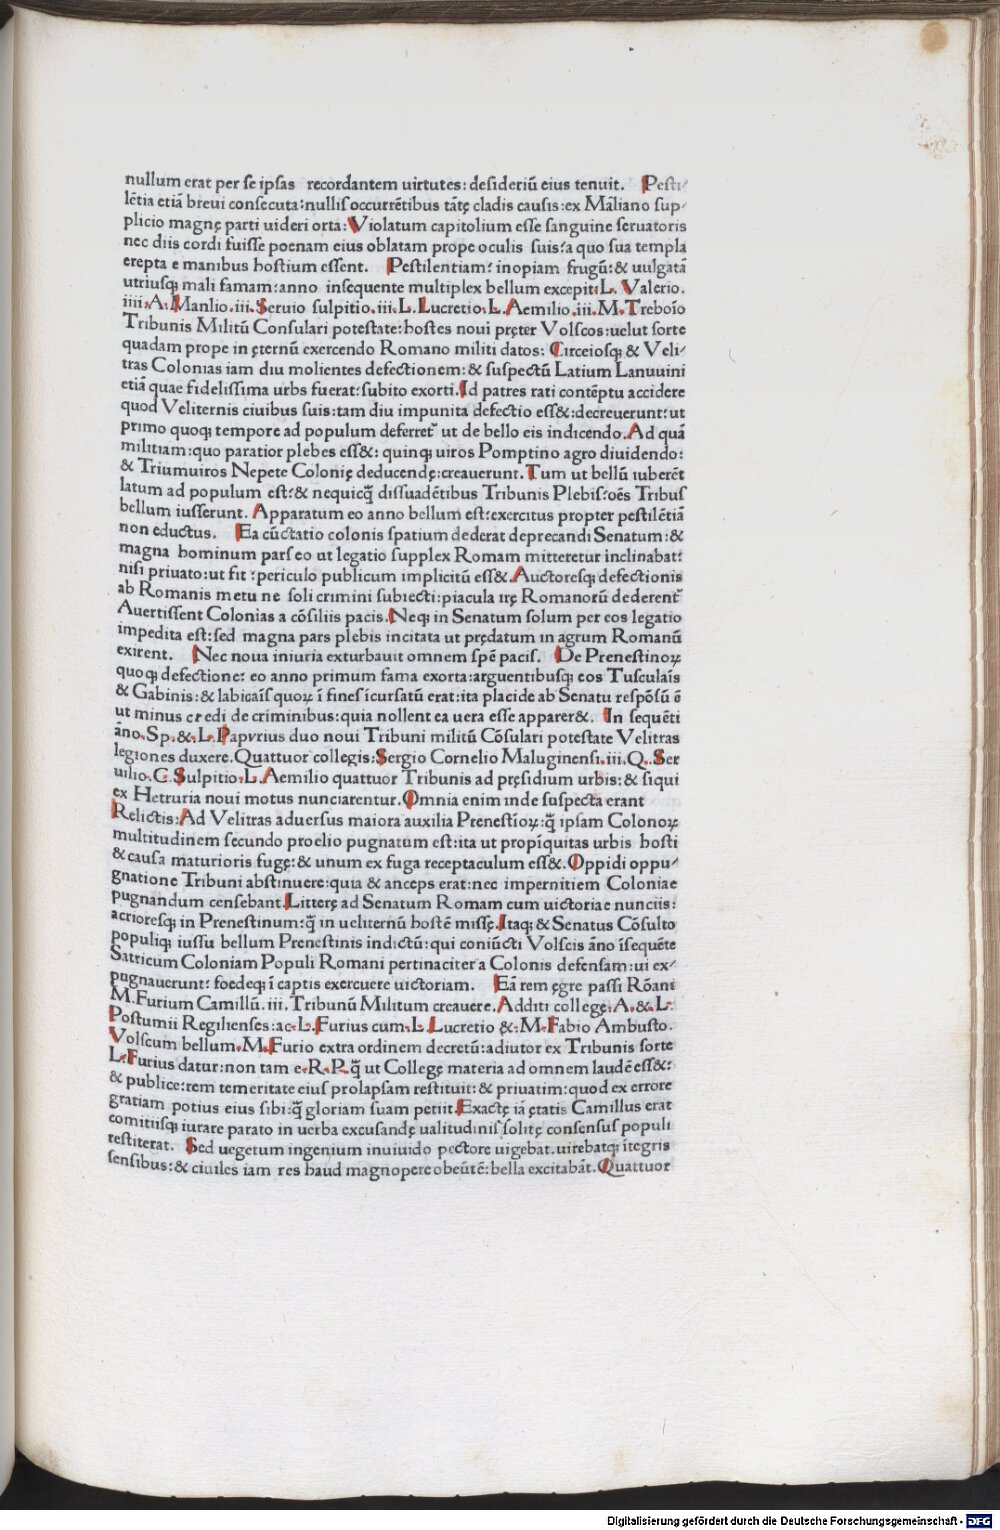 nullum erat per se ipsas recordantem uirtutes: desideriū eius tenuit. Pesti⸗
lētia etiā breui consecuta: nullis occurrētibus tātę cladis causis: ex Māliano sup⸗
plicio magnę parti uideri orta: Violatum capitolium esse sanguine seruatoris
nec diis cordi fuisse poenam eius oblatam prope oculis suis: a quo sua templa
erepta e manibus hostium essent. Pestilentiam: inopiam frugū: & uulgatā
utriusq; mali famam: anno insequente multiplex bellum excepit: L. Valerio.
iiii. A. Manlio. iii. Seruio sulpitio. iii. L. Lucretio. L. Aemilio. iii. M. Treboīo
Tribunis Militū Consulari potestate: hostes noui pręter Volscos: uelut sorte
quadam prope in ęternū exercendo Romano militi datos: Circeiosq; & Veli⸗
tras Colonias iam diu molientes defectionem: & suspectū Latium Lanuuini
etiā quae fidelissima urbs fuerat: subito exorti. Id patres rati contēptu accidere
quod Veliternis ciuibus suis: tam diu impunita defectio ess&: decreuerunt: ut
primo quoq; tempore ad populum deferret̄ ut de bello eis indicendo. Ad quā
militiam: quo paratior plebes ess&: quinq; uiros Pomptino agro diuidendo:
& Triumuiros Nepete Colonię deducendę: creauerunt. Tum ut bellū iuberēt
latum ad populum est: & nequicq̄ dissuadētibus Tribunis Plebis: oēs Tribus
bellum iusserunt. Apparatum eo anno bellum est: exercitus propter pestilētiā
non eductus. Ea cūctatio colonis spatium dederat deprecandi Senatum: &
magna hominum pars eo ut legatio supplex Romam mitteretur inclinabat:
nisi priuato: ut fit: periculo publicum implicitū ess&. Auctoresq; defectionis
ab Romanis metu ne soli crimini subiecti: piacula irę Romanorū dederent̄
Auertissent Colonias a cōsiliis pacis. Neq; in Senatum solum per eos legatio
impedita est: sed magna pars plebis incitata ut prędatum in agrum Romanū
exirent. Nec noua iniuria exturbauit omnem spē pacis. De Prenestinoꝝ
quoq; defectione: eo anno primum fama exorta: arguentibusq; eos Tusculaīs
& Gabinis: & labicaīs quoꝝ ī fines īcursatū erat: ita placide ab Senatu respōsū ē
ut minus credi de criminibus: quia nollent ea uera esse apparer&. In sequēti
āno. Sp. &. L. Papyrius duo noui Tribuni militū Cōsulari potestate Velitras
legiones duxere. Quattuor collegis: Sergio Cornelio Maluginensi. iii. Q. Ser
uilio. C. Sulpitio. L. Aemilio quattuor Tribunis ad pręsidium urbis: & siqui
ex Hetruria noui motus nunciarentur. Omnia enim inde suspecta erant
Relictis: Ad Velitras aduersus maiora auxilia Prenestīoꝝ: q̄ ipsam Colonoꝝ
multitudinem secundo proelio pugnatum est: ita ut propīquitas urbis hosti
& causa maturioris fugę: & unum ex fuga receptaculum ess&. Oppidi oppu⸗
gnatione Tribuni abstinuere: quia & anceps erat: nec inpernitiem Coloniae
pugnandum censebant. Litterę ad Senatum Romam cum uictoriae nunciis:
acrioresq; in Prenestinum: q̄ in ueliternū hostē missę. Itaq; & Senatus Cōsulto
populiq; iussu bellum Prenestinis indictū: qui coniūcti Volscis āno īsequēte
Satricum Coloniam Populi Romani pertinaciter a Colonis defensam: ui ex⸗
pugnauerunt: foedeq; ī captis exercuere uictoriam. Eā rem ęgre passi Rōani
M. Furium Camillū. iii. Tribunū Militum creauere. Additi collegę: A. &. L.
Postumii Regilienses: ac. L. Furius cum. L. Lucretio &: M. Fabio Ambusto.
Volscum bellum. M. Furio extra ordinem decretū: adiutor ex Tribunis sorte
L. Furius datur: non tam e. R. P. q̄ ut Collegę materia ad omnem laudē ess&:
& publice: rem temeritate eius prolapsam restituit: & priuatim: quod ex errore
gratiam potius eius sibi: q̄ gloriam suam petiit. Exactę iā ętatis Camillus erat
comitiisq; iurare parato in uerba excusandę ualitudinis solitę consensus populi
restiterat. Sed uegetum ingenium inuiuido pectore uigebat. uirebatq; ītegris
sensibus: & ciuiles iam res haud magnopere obeūtē: bella excitabāt. Quattuor
Digitalisierung gefördert durch die Deutsche Forschungsgemeinschaft - DFG